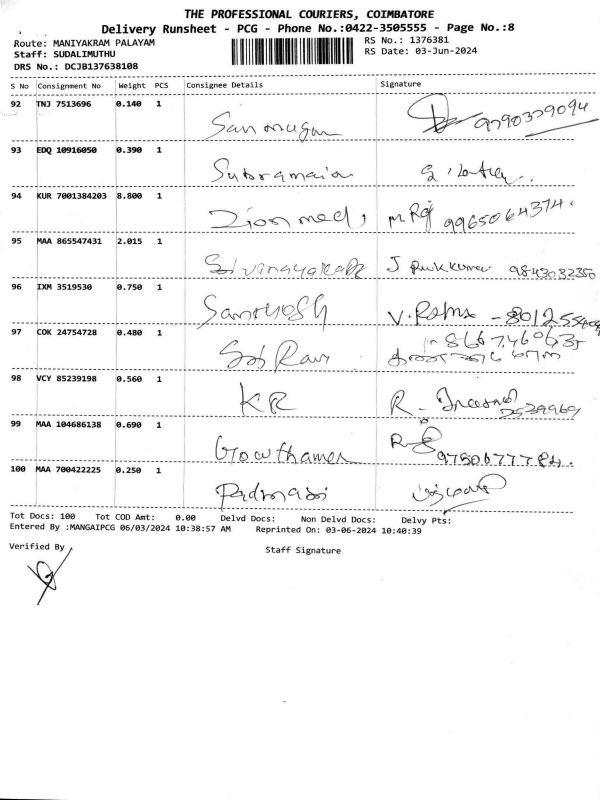 THE PROFESSIONAL COURIERS, COIMBATORE
Delivery Runsheet - PCG - Phone No.:0422-3505555 - Page No.:8
Route: MANIYAKRAM PALAYAM
RS No.: 1376381
Staff: SUDALIMUTHU
RS Date: 03-Jun-2024
DRS No.: DCJB137638108
S No Consignment No Weight PCS Consignee Details Signature
92 TNJ 7513696 0.140 1 Sanmugam 9790379094
93 EDQ 10916050 0.390 1 Subramaian
94 KUR 7001384203 8.800 1 Zion med, M.Raj 9965064374.
95 MAA 865547431 2.015 1 J 9843032350
96 IXM 3519530 0.750 1 Santhosh V. Rama
97 COK 24754728 0.480 1 Sai Ram
98 VCY 85239198 0.560 1 KR R.
99 MAA 104686138 0.690 1 Gowthaman
100 MAA 700422225 0.250 1
Tot Docs: 100 Tot COD Amt: 0.00 Delvd Docs: Non Delvd Docs: Delvy Pts:
Entered By :MANGAIPCG 06/03/2024 10:38:57 AM Reprinted On: 03-06-2024 10:40:39
Verified By
Staff Signature